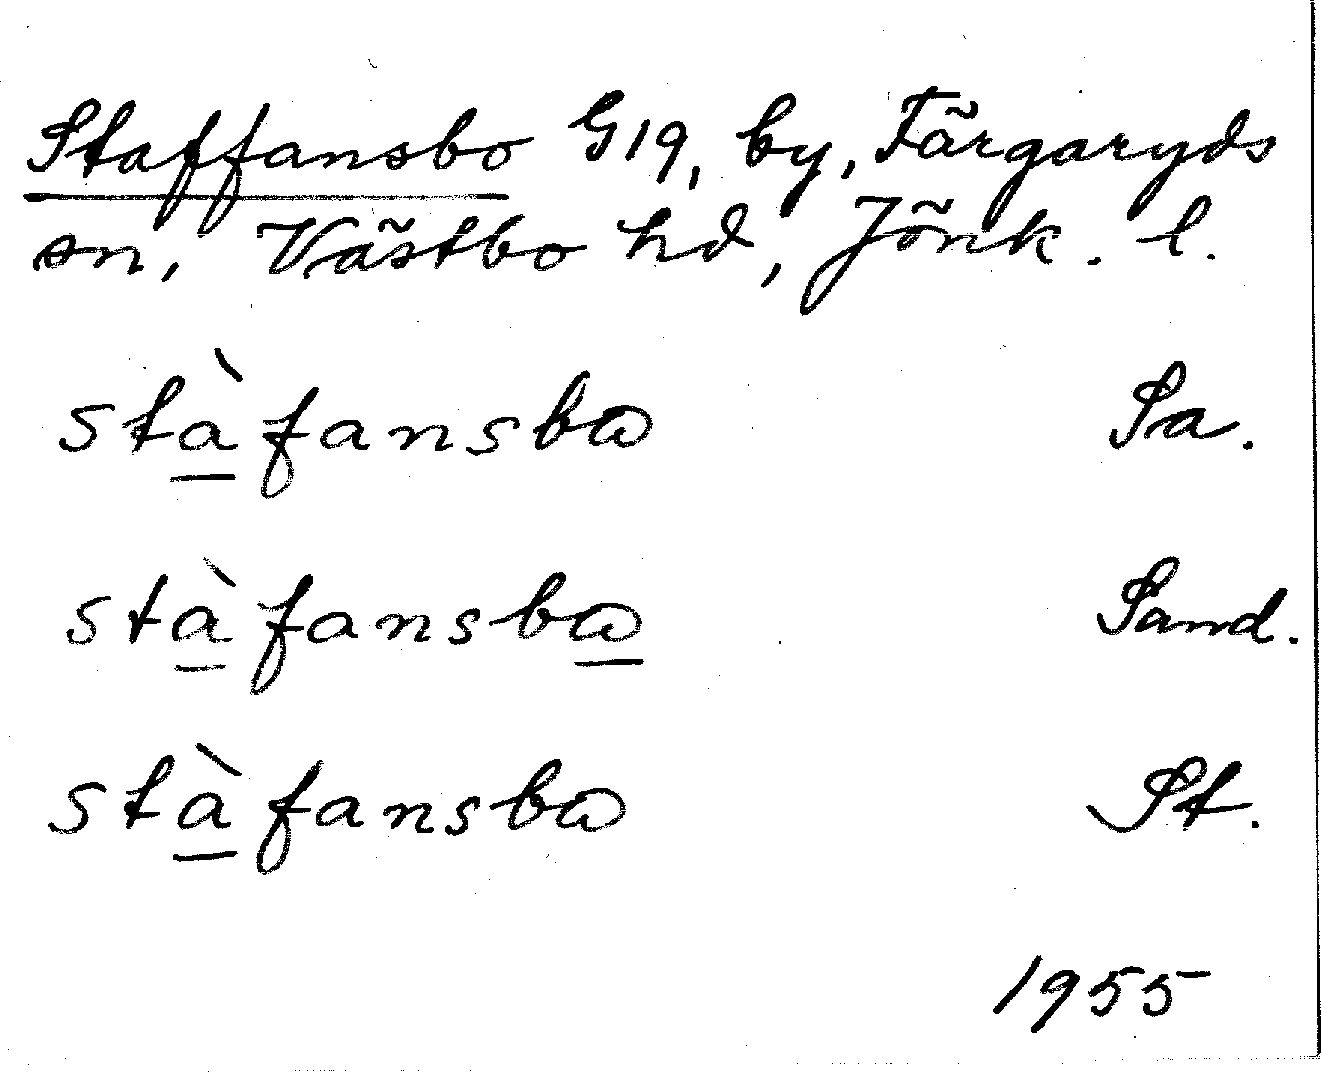 Staffansbo G19, by, Färgaryds
sn, Västbo hd, Jönk. l.
stàfansbɷ Sa.
stàfansbɷ Sand.
stàfansbɷ St.
1955